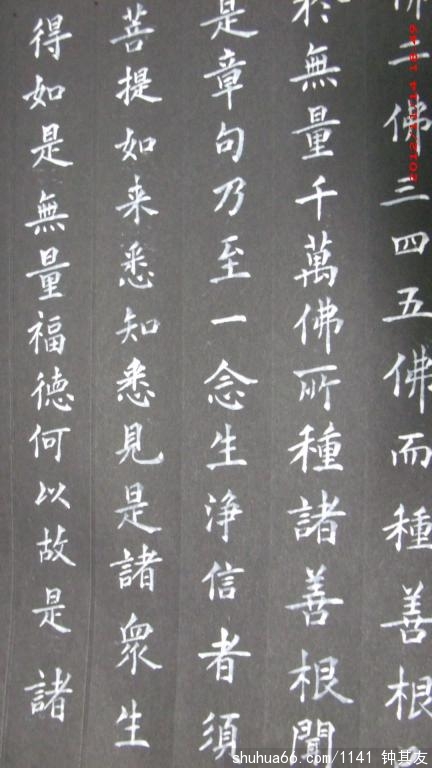 佛二佛三四五佛而種善根
於無量千萬佛所種諸善根聞
是章句乃至一念生淨信者須
菩提如来悉知悉見是諸眾生
得如是無量福德何以故是諸
shuhua66.com/1141 钟其友